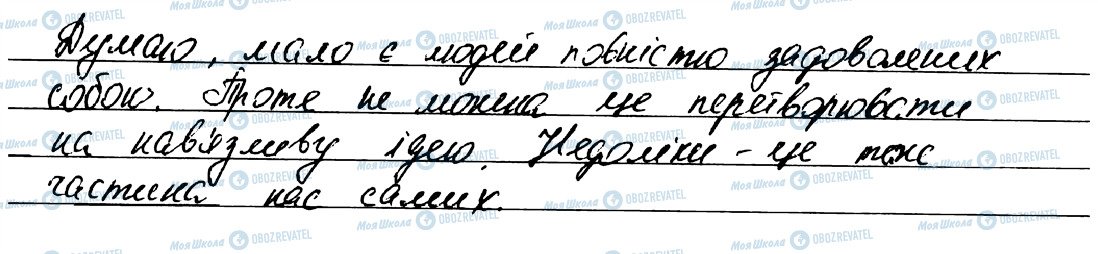 Думаю, мало є людей повністю задоволених
собою. Проте не можна це перетворювати
на нав'язливу ідею. Недоліки – це теж
частина нас самих.